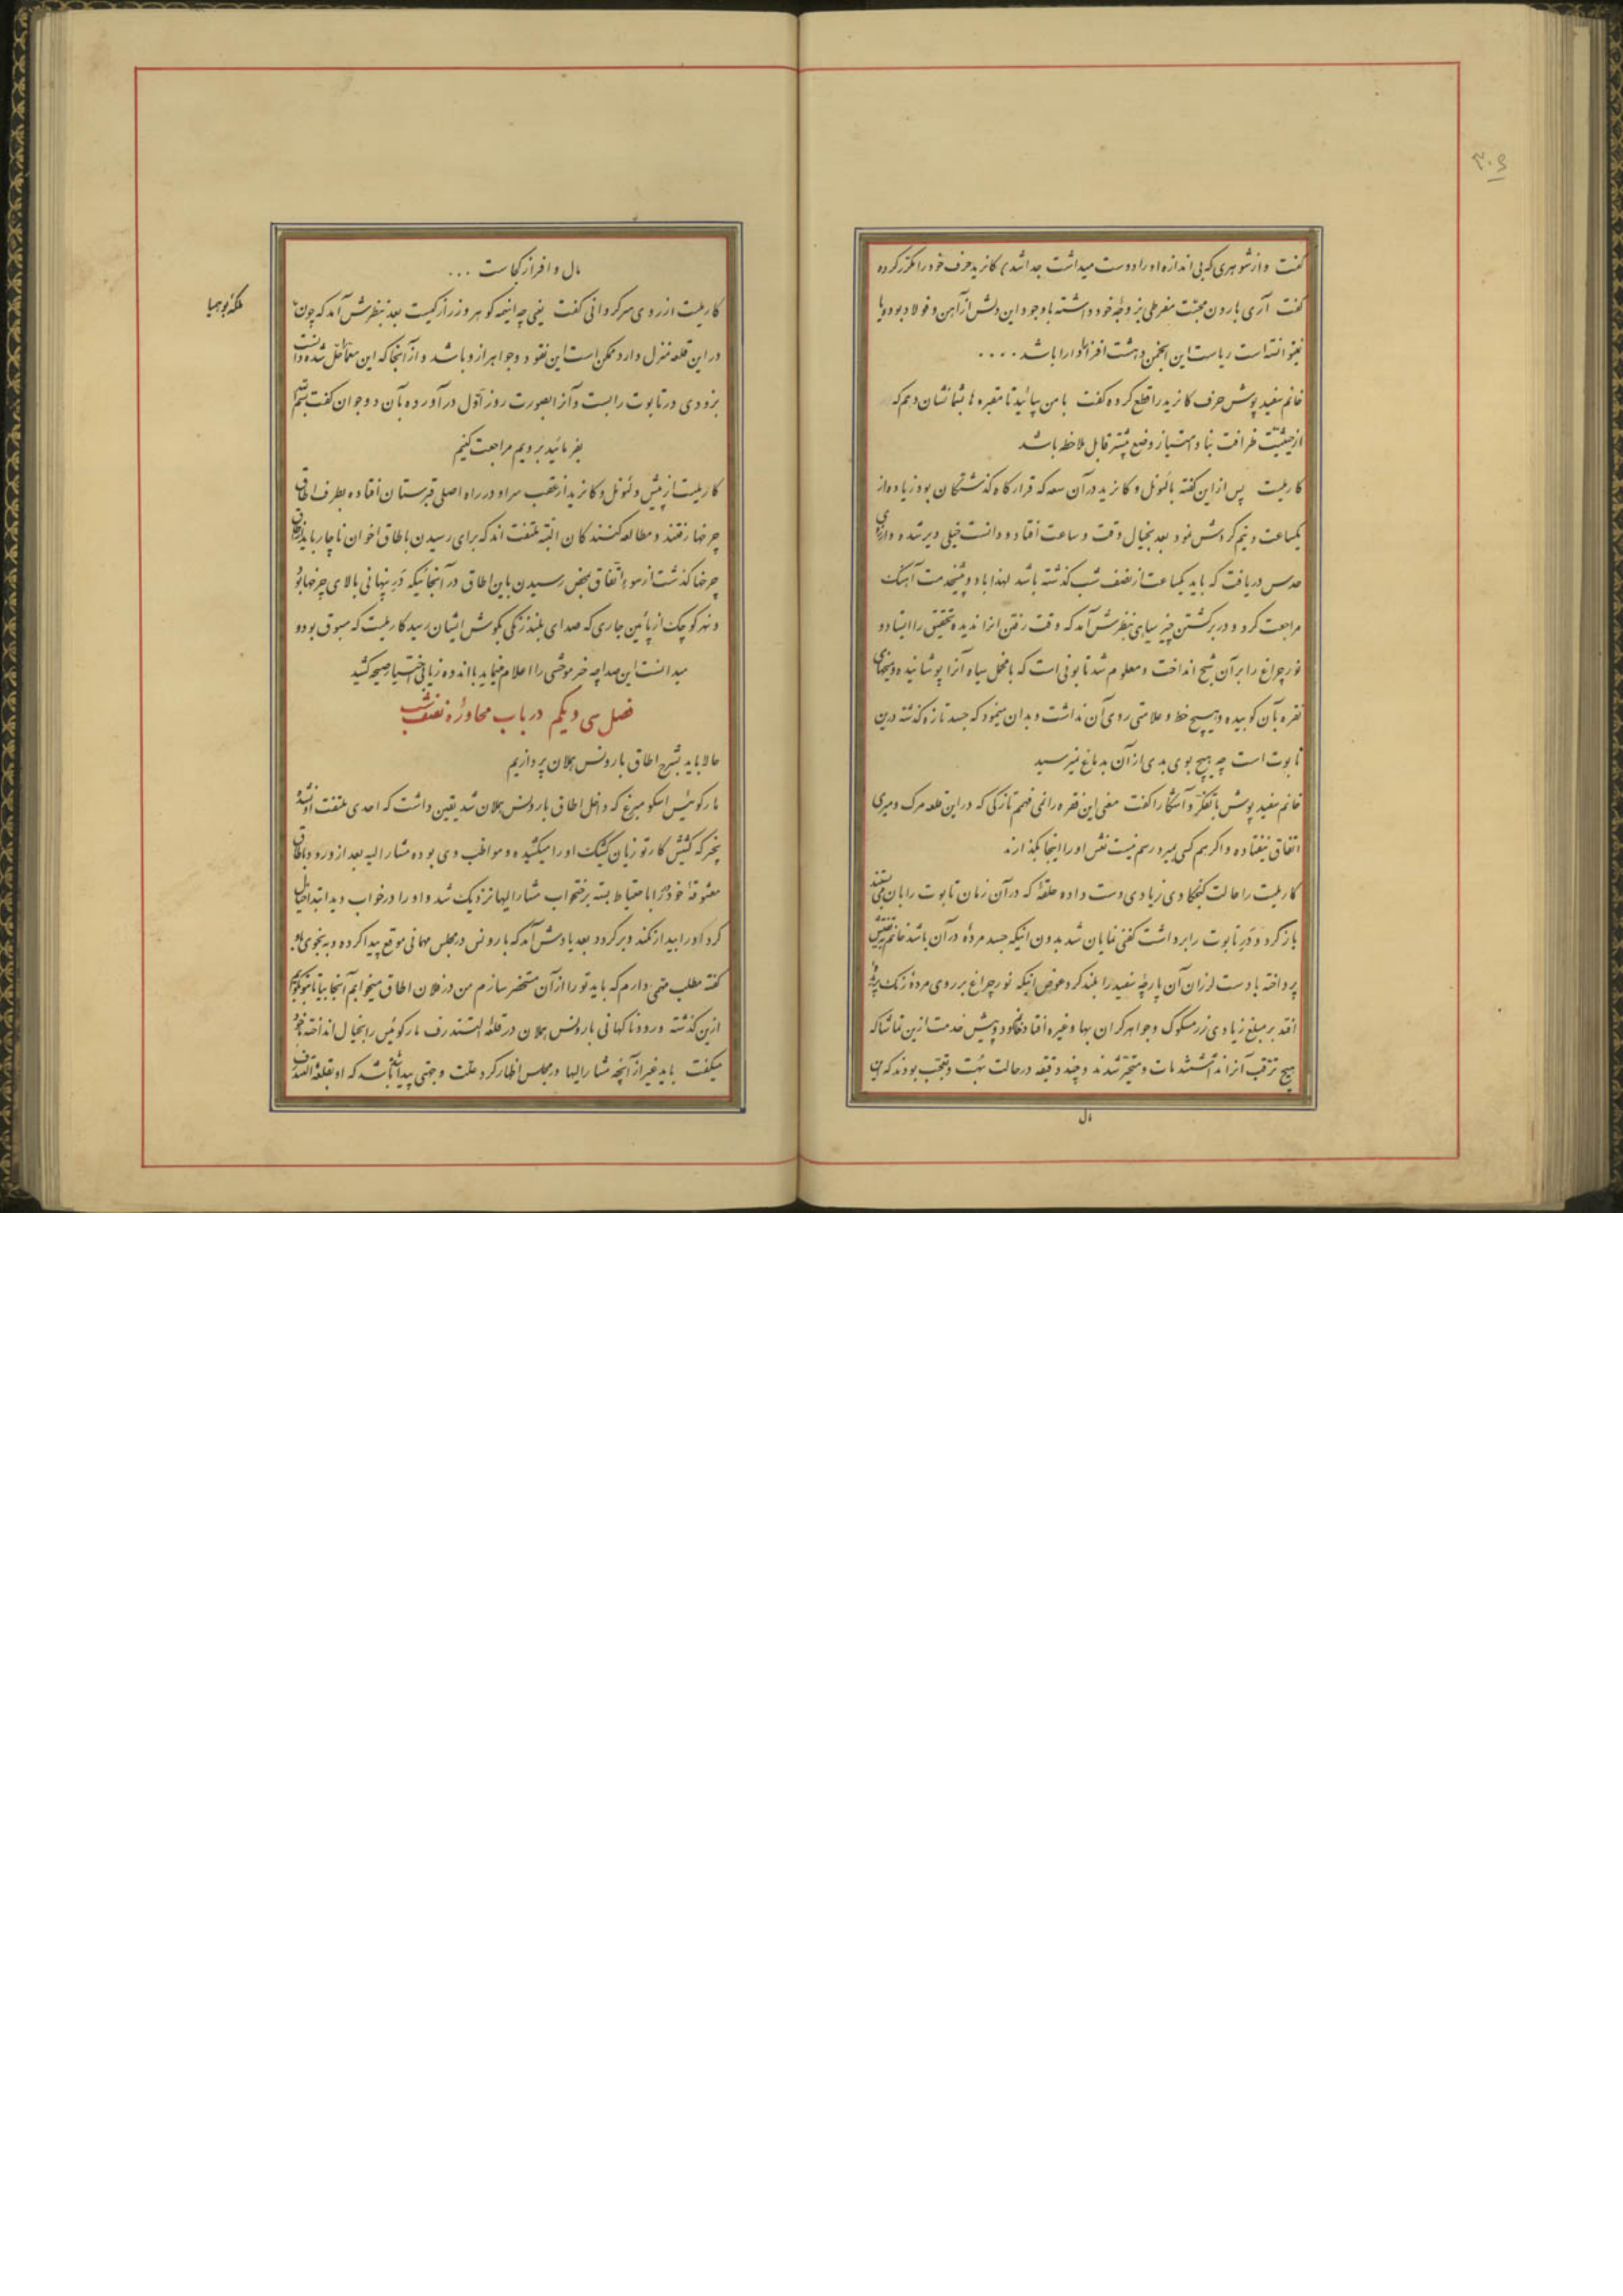 ۳۰۶
گفت و از شوهری که بی اندازه او را دوست میداشت جدا شد کانرید حرف خود را مکرر کرده
گفت آری بارون محبت مفرطی بزوجهٔ خود داشته با وجود این دلش از آهن و فولاد بوده و یا
نتوانسته است ریاست این انجمن دهشت افزا را دارا باشد ....
خانم سفید پوش حرف کانرید را قطع کرده گفت با من بیائید تا مقبره ها بشما نشان دهم که
از حیثیت ظرافت بنا و امتیاز وضع بیشتر قابل ملاحظه باشد
کارلیت پس از این گفته با لئونل و کانرید در آن معبد که قرارگاه گذشتگان بود زیاده از
یکساعت و نیم گردش نمود بعد بخیال وقت و ساعت افتاد و دانست خیلی دیر شده و از روی
حدس دریافت که باید یکساعت از نصف شب گذشته باشد لهذا با دو پیشخدمت آهنگ
مراجعت کرد و در برگشتن چیز سیاهی بنظرش آمد که وقت رفتن آنرا ندیده تحقیق را ایستاد و
نور چراغ را بر آن شبح انداخت و معلوم شد تابوتی است که با مخمل سیاه آنرا پوشانیده و میخهای
نقره بآن کوبیده و هیچ خط و علامتی روی آن نداشت و بدان مینمود که جسد تازه گذشته درین
تابوت است چه هیچ بوی بدی از آن بدماغ نمیرسید
خانم سفید پوش با تفکر و آشکارا گفت معنی این فقره را نمی فهمم تازگی که در این قلعه مرگ و میری
اتفاق نیفتاده و اگر هم کسی بمیرد رسم نیست نعش او را اینجا بگذارند
کارلیت را حالت کنجکاوی زیادی دست داده حلقهٔ که در آن زمان تابوت را بان می بستند
باز کرد و در تابوت را برداشت کفنی نمایان شد بدون اینکه جسد مردهٔ در آن باشد خانم بتفتیش
پرداخته با دست لرزان آن پارچهٔ سفید را بلند کرد عوض اینکه نور چراغ بر روی مرده رنگ پریدهٔ
افتد بر مبلغ زیادی زر مسکوک و جواهر گران بها و غیره افتاد خانم و دو پیش خدمت ازین تماشا که
هیچ ترقب آنرا نداشتند مات و متحیر شدند و چند دقیقه در حالت بهت و تعجب بودند که این
مال
مال وافر از کجاست ...
ملکهٔ بوهمیا
کارلیت از روی سرگردانی گفت یعنی چه اینهمه گوهر و زر از کیست بعد بنظرش آمد که چون
در این قلعه منزل دارد ممکن است این نقود و جواهر از او باشد و از آنجا که این معما حل شده دانست
بزودی در تابوت را بست و آنرا بصورت روز اول در آورده بآن دو جوان گفت بسم الله
بفرمائید برویم مراجعت کنیم
کارلیت از پیش و لئونل و کانرید از عقب سر او در راه اصلی قبرستان افتاده بطرف اطاق
چرخها رفتند و مطالعه کنندگان البته ملتفت اند که برای رسیدن باطاق اخوان ناچار باید از اطاق
چرخها گذشت از سوء اتفاق بمحض رسیدن باین اطاق در آنجائیکه در پنهانی بالای چرخها بود
و نهر کوچک از پائین جاری که صدای بلند زنگی بگوش ایشان رسید کارلیت که مسبوق بود و
میدانست این صدا چه خبر موحشی را اعلام مینماید با اندوه زیاد بی اختیار صیحه کشید
فصل سی و یکم در باب محاورهٔ نصف شب
حالا باید بشرح اطاق بارونس هملان پردازیم
مارکوئیس اسکومبرغ که داخل اطاق بارونس هملان شد یقین داشت که احدی ملتفت او نشده
بیخبر که کشیش کارتوزیان کشیک او را میکشیده و مواظب وی بوده مشارالیه بعد از ورود باطاق
معشوقهٔ خود در را باحتیاط بسته برختخواب مشارالیها نزدیک شد و او را در خواب دید ابتدا خیال
کرد او را بیدار نکند و برگردد بعد یادش آمد که بارونس در مجلس مهمانی موقع پیدا کرده و به نجوی باو
گفته مطلب مهمی دارم که باید تو را از آن مستحضر سازم من در فلان اطاق میخوابم آنجا بیا تا بتو بگویم
ازین گذشته ورود ناگهانی بارونس هملان در قلعهٔ التندرف مارکوئیس را بخیال انداخته با خود
میگفت باید غیر از آنچه مشارالیها در مجلس اظهار کرد علت و جهتی پیدا باشد که او بقلعهٔ التندرف